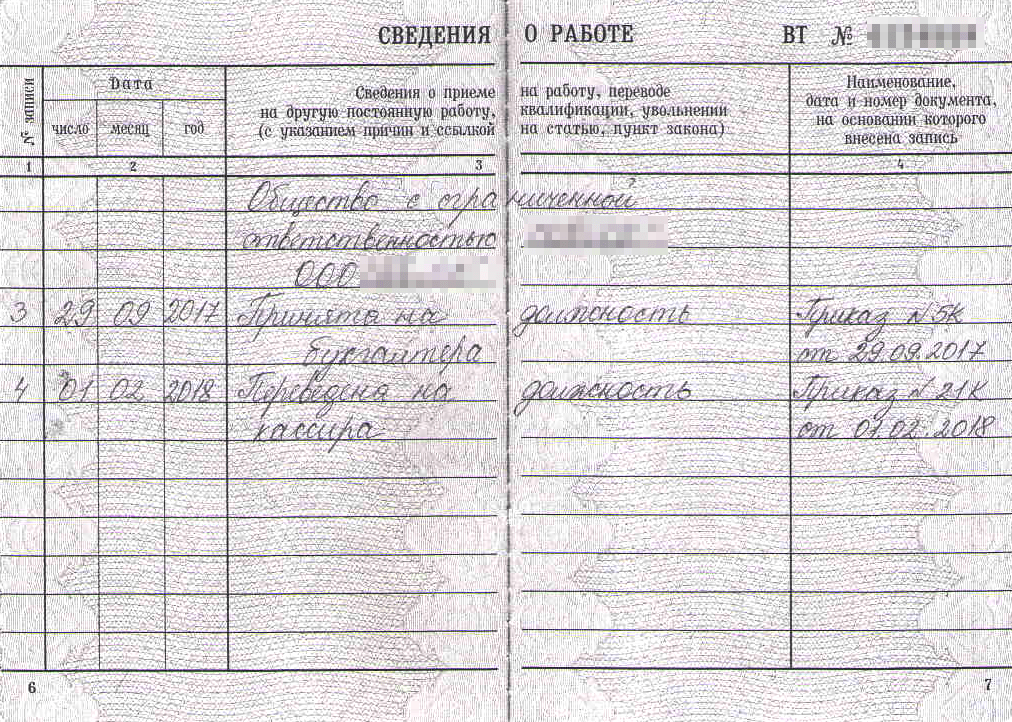 СВЕДЕНИЯ О РАБОТЕ ВТ №
№ записи
Дата
число месяц год
Сведения о приеме на работу, переводе
на другую постоянную работу, квалификации, увольнении
(с указанием причин и ссылкой на статью, пункт закона)
Наименование,
дата и номер документа,
на основании которого
внесена запись
1 2 3 4
Общество с ограниченной
ответственностью
ООО
3 29 09 2017 Принята на должность Приказ №5К
бухгалтера от 29.09.2017
4 01 02 2018 Переведена на должность Приказ № 21К
кассира от 01.02.2018
6 7